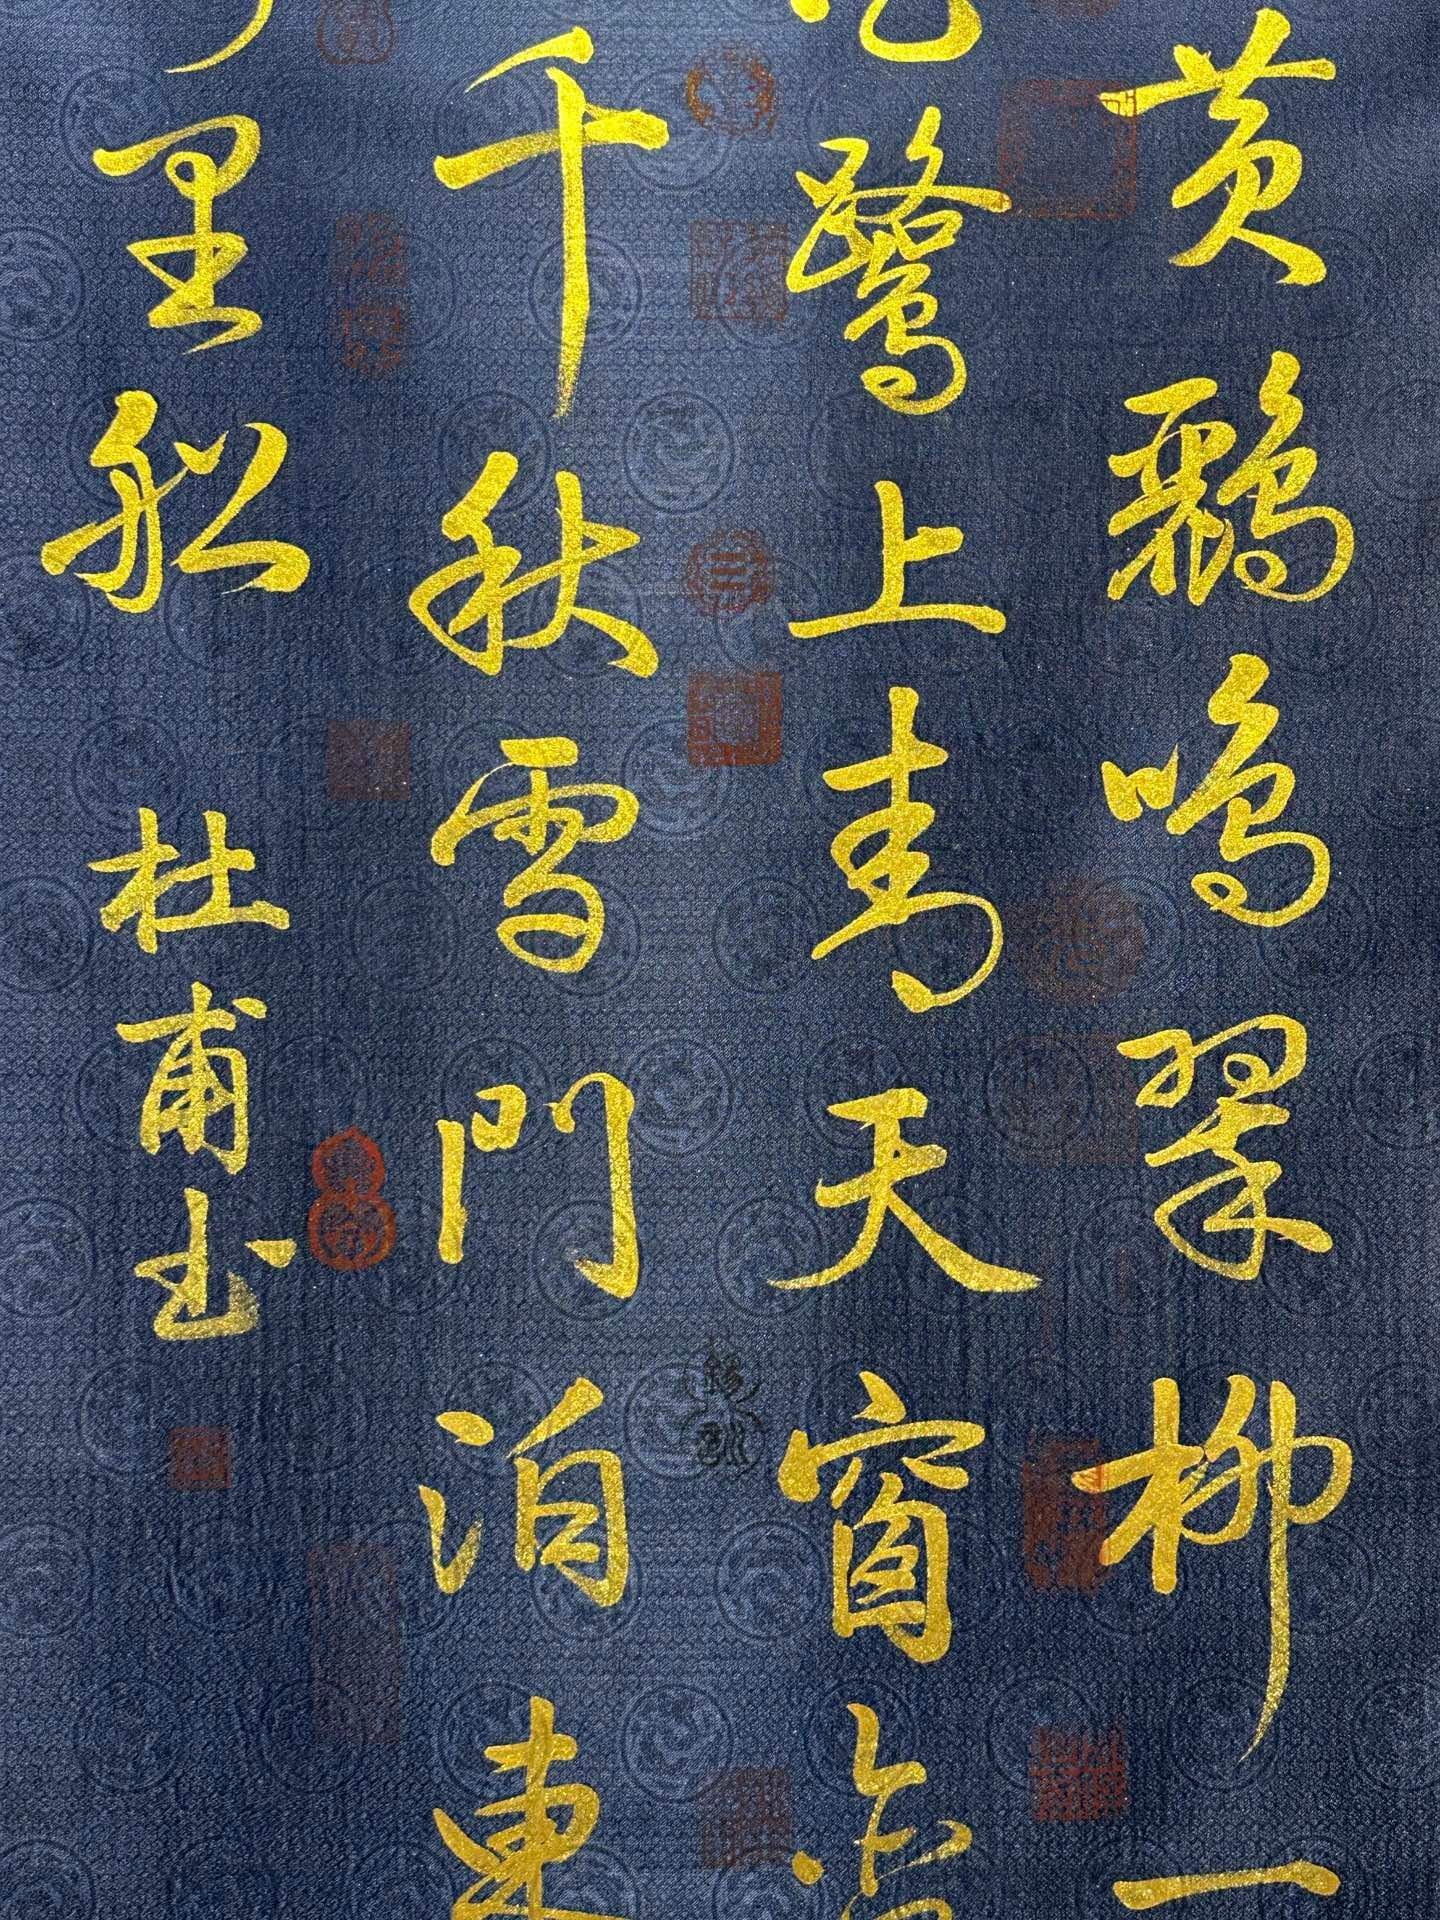 黄鸝鳴翠柳一
鷺上青天窗含
千秋雪門泊東
里船 杜甫